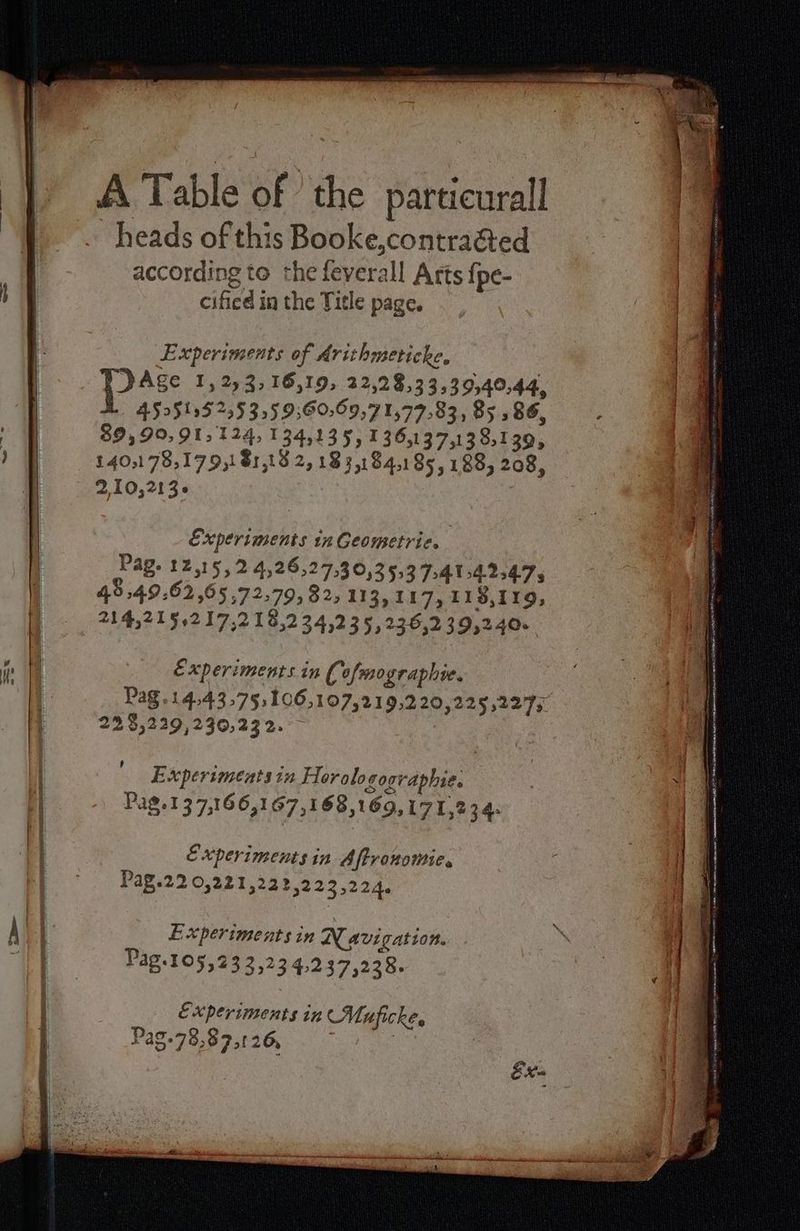 A Table of the particurall
heads of this Booke,contracted
according to the ſeverall Arts ſpe-
cified in the Title page.
Experiments of Arithmeticke.
PAge 1,2,3,16,19, 22,28,33,39,40,44,
45,51,52,53,59,60,69,71,77,83, 85,86,
89,90,91,124,134,135,136,137,138,139,
140,178,179,181,182,183,184,185,188, 208,
2,10,213.
Experiments in Geometrie.
Pag. 12,15,24,26,27,30,35,37,41,42,47,
48,49,62,65,72,79,82,113,117,118,119,
214,215,217,218,234,235,236,239,240.
Experiments in Coſmographie.
Pag.14,43,75,106,107,219,220,225,227,
228,229,230,232.
Experiments in Horologographie.
Pag.137,166,167,168,169,171,234.
Experiments in Aſtronomie.
Pag.220,221,222,223,224.
Experiments in Navigation.
Pag.105,233,234,237,238.
Experiments in Muſicke,
Pag.78,87,126,
Ex-